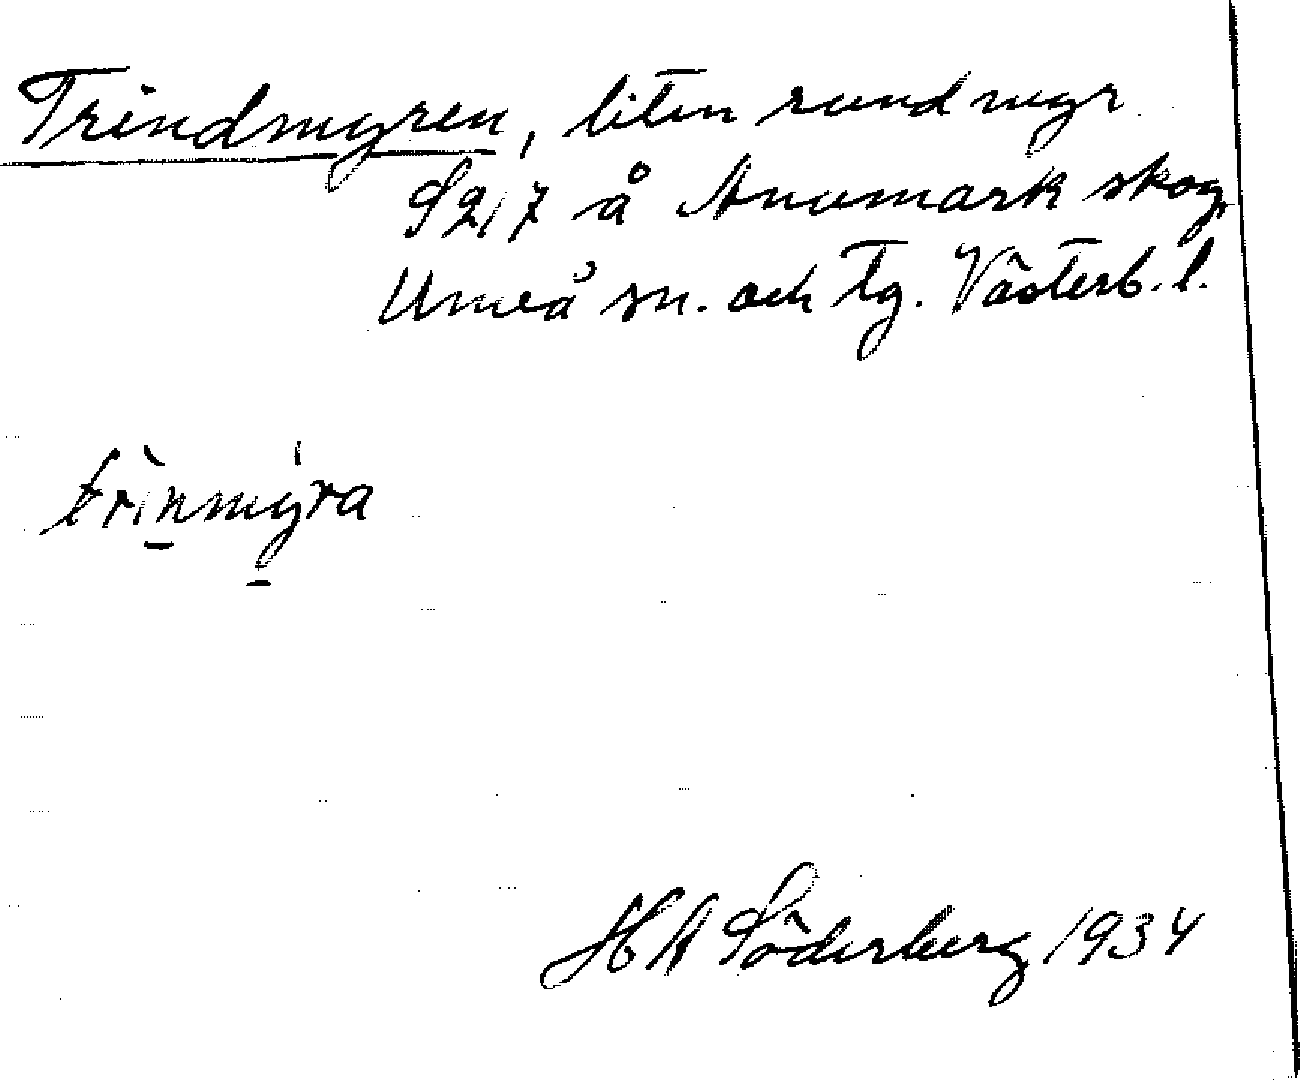 Trindmyren, liten rund myr
S2/7 å Anumark skog,
Umeå sn. och tg. Västerb. l.
trìnmýra
H A Söderberg 1934